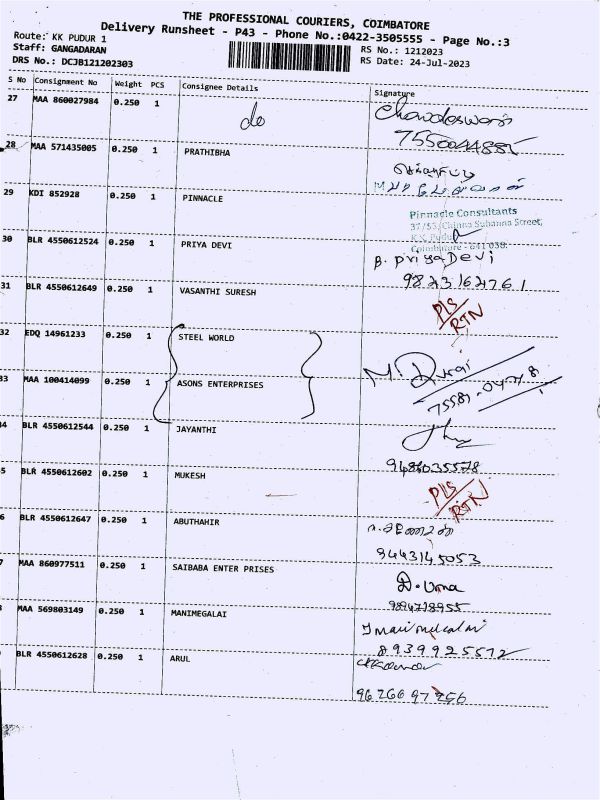 THE PROFESSIONAL COURIERS, COIMBATORE
Delivery Runsheet - P43 - Phone No.:0422-3505555 - Page No.:3
Route: KK PUDUR 1
RS No.: 1212023
Staff: GANGADARAN
RS Date: 24-Jul-2023
DRS No.: DCJB121202303
S No Consignment No Weight PCS Consignee Details Signature
27 MAA 860027984 0.250 1 do
28 MAA 571435005 0.250 1 PRATHIBHA
29 KDI 852928 0.250 1 PINNACLE
Pinnacle Consultants
37/53, Chinna Subanna Street,
K.K. Pudur
Coimbatore - 641 038.
30 BLR 4550612524 0.250 1 PRIYA DEVI
B. Priya Devi
31 BLR 4550612649 0.250 1 VASANTHI SURESH
Pls
RTN
32 EDQ 14961233 0.250 1 STEEL WORLD
M. Durai
33 MAA 100414099 0.250 1 ASONS ENTERPRISES
4 BLR 4550612544 0.250 1 JAYANTHI
5 BLR 4550612602 0.250 1 MUKESH
Pls
RTN
6 BLR 4550612647 0.250 1 ABUTHAHIR
9443145053
7 MAA 860977511 0.250 1 SAIBABA ENTER PRISES
D. Uma
9894718955
MAA 569803149 0.250 1 MANIMEGALAI
8939925512
BLR 4550612628 0.250 1 ARUL